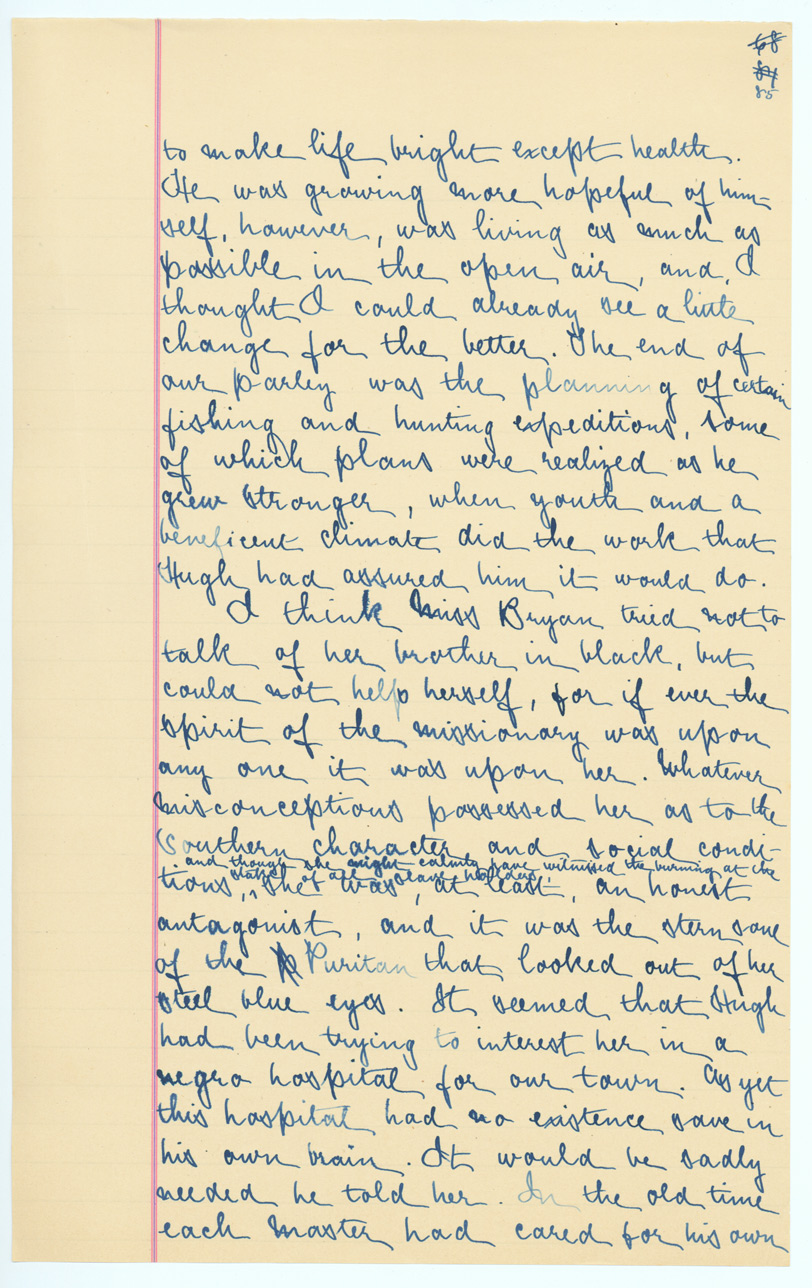 68
84
85
to make life bright except health.
He was growing more hopeful of him-
self, however, was living as much as
possible in the open air, and, I
thought I could already see a little
change for the better. The end of
our parley was the planning of certain
fishing and hunting expeditions, some
of which plans were realized as he
grew stronger, when youth and a
beneficent climate did the work that
Hugh had assured him it would do.
I think Miss Bryan tried not to
talk of her brother in black, but
could not help herself, for if ever the
spirit of the missionary was upon
any one it was upon her. Whatever
misconceptions possessed her as to the
Southern character and social condi-
and though she might calmly have witnessed the burning at the
stake of all slave holders,
tions, she was, at least, an honest
antagonist, and it was the stern soul
of the Puritan that looked out of her
steel blue eyes. It seemed that Hugh
had been trying to interest her in a
negro hospital for our town. As yet
this hospital had no existence save in
his own brain. It would be sadly
needed he told her. In the old time
each master had cared for his own